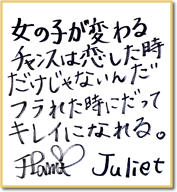 女の子が変わる
チャンスは恋した時
だけじゃないんだ
フラれた時にだって
キレイになれる。
Juliet